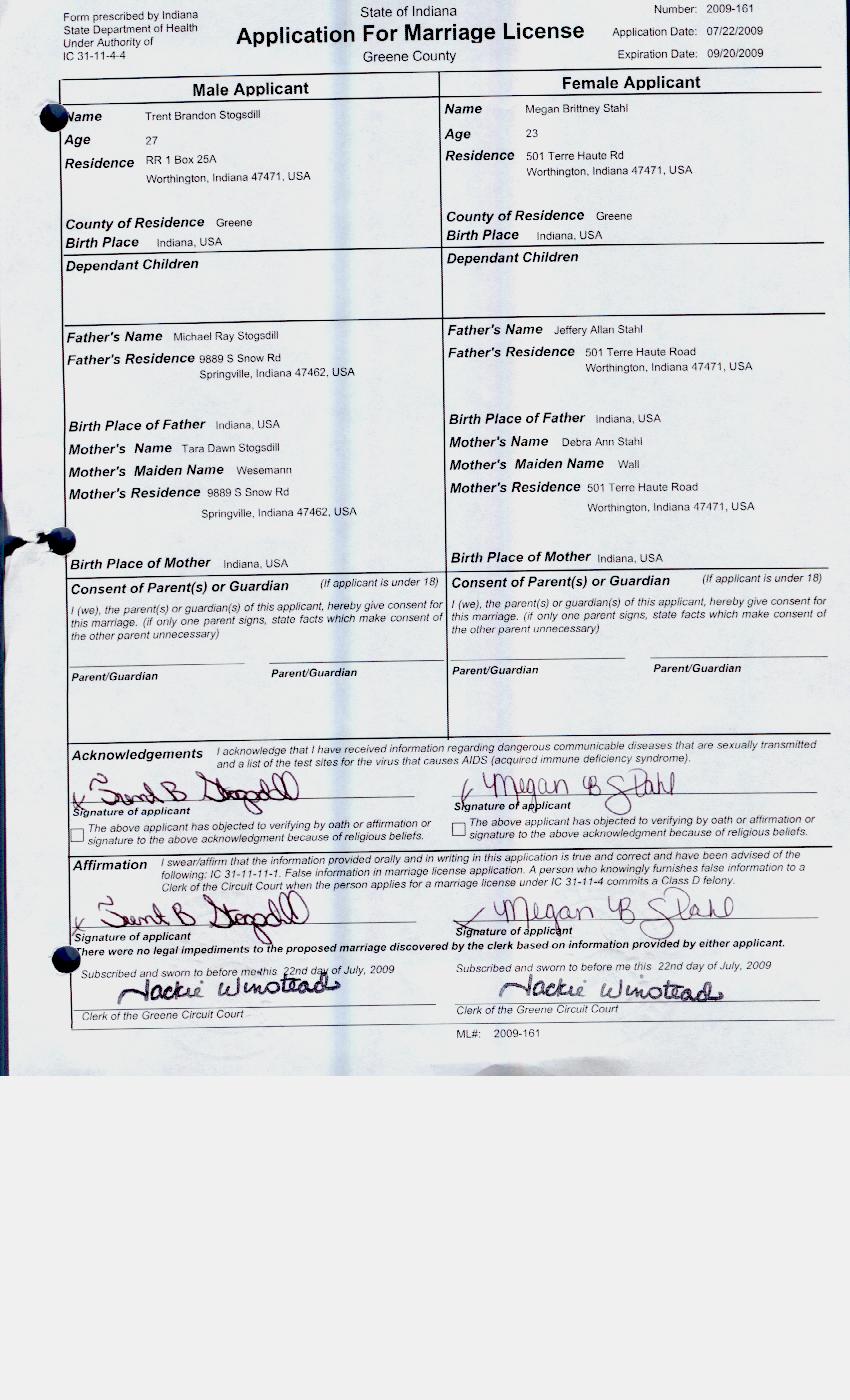 Form prescribed by Indiana
State Department of Health
Under Authority of
IC 31-11-4-4
State of Indiana
Application For Marriage License
Greene County
Number: 2009-161
Application Date: 07/22/2009
Expiration Date: 09/20/2009
Male Applicant
Name Trent Brandon Stogsdill
Age 27
Residence RR 1 Box 25A
Worthington, Indiana 47471, USA
County of Residence Greene
Birth Place Indiana, USA
Dependant Children
Father's Name Michael Ray Stogsdill
Father's Residence 9889 S Snow Rd
Springville, Indiana 47462, USA
Birth Place of Father Indiana, USA
Mother's Name Tara Dawn Stogsdill
Mother's Maiden Name Wesemann
Mother's Residence 9889 S Snow Rd
Springville, Indiana 47462, USA
Birth Place of Mother Indiana, USA
Consent of Parent(s) or Guardian (If applicant is under 18)
I (we), the parent(s) or guardian(s) of this applicant, hereby give consent for
this marriage. (if only one parent signs, state facts which make consent of
the other parent unnecessary)
Parent/Guardian Parent/Guardian
Female Applicant
Name Megan Brittney Stahl
Age 23
Residence 501 Terre Haute Rd
Worthington, Indiana 47471, USA
County of Residence Greene
Birth Place Indiana, USA
Dependant Children
Father's Name Jeffery Allan Stahl
Father's Residence 501 Terre Haute Road
Worthington, Indiana 47471, USA
Birth Place of Father Indiana, USA
Mother's Name Debra Ann Stahl
Mother's Maiden Name Wall
Mother's Residence 501 Terre Haute Road
Worthington, Indiana 47471, USA
Birth Place of Mother Indiana, USA
Consent of Parent(s) or Guardian (If applicant is under 18)
I (we), the parent(s) or guardian(s) of this applicant, hereby give consent for
this marriage. (if only one parent signs, state facts which make consent of
the other parent unnecessary)
Parent/Guardian Parent/Guardian
Acknowledgements I acknowledge that I have received information regarding dangerous communicable diseases that are sexually transmitted
and a list of the test sites for the virus that causes AIDS (acquired immune deficiency syndrome).
x Trent B Stogsdill
Signature of applicant
The above applicant has objected to verifying by oath or affirmation or
signature to the above acknowledgment because of religious beliefs.
x Megan B Stahl
Signature of applicant
The above applicant has objected to verifying by oath or affirmation or
signature to the above acknowledgment because of religious beliefs.
Affirmation I swear/affirm that the information provided orally and in writing in this application is true and correct and have been advised of the
following: IC 31-11-11-1. False information in marriage license application. A person who knowingly furnishes false information to a
Clerk of the Circuit Court when the person applies for a marriage license under IC 31-11-4 commits a Class D felony.
x Trent B Stogsdill
Signature of applicant
x Megan B Stahl
Signature of applicant
There were no legal impediments to the proposed marriage discovered by the clerk based on information provided by either applicant.
Subscribed and sworn to before me this 22nd day of July, 2009
Jackie Winstead
Clerk of the Greene Circuit Court
Subscribed and sworn to before me this 22nd day of July, 2009
Jackie Winstead
Clerk of the Greene Circuit Court
ML#: 2009-161